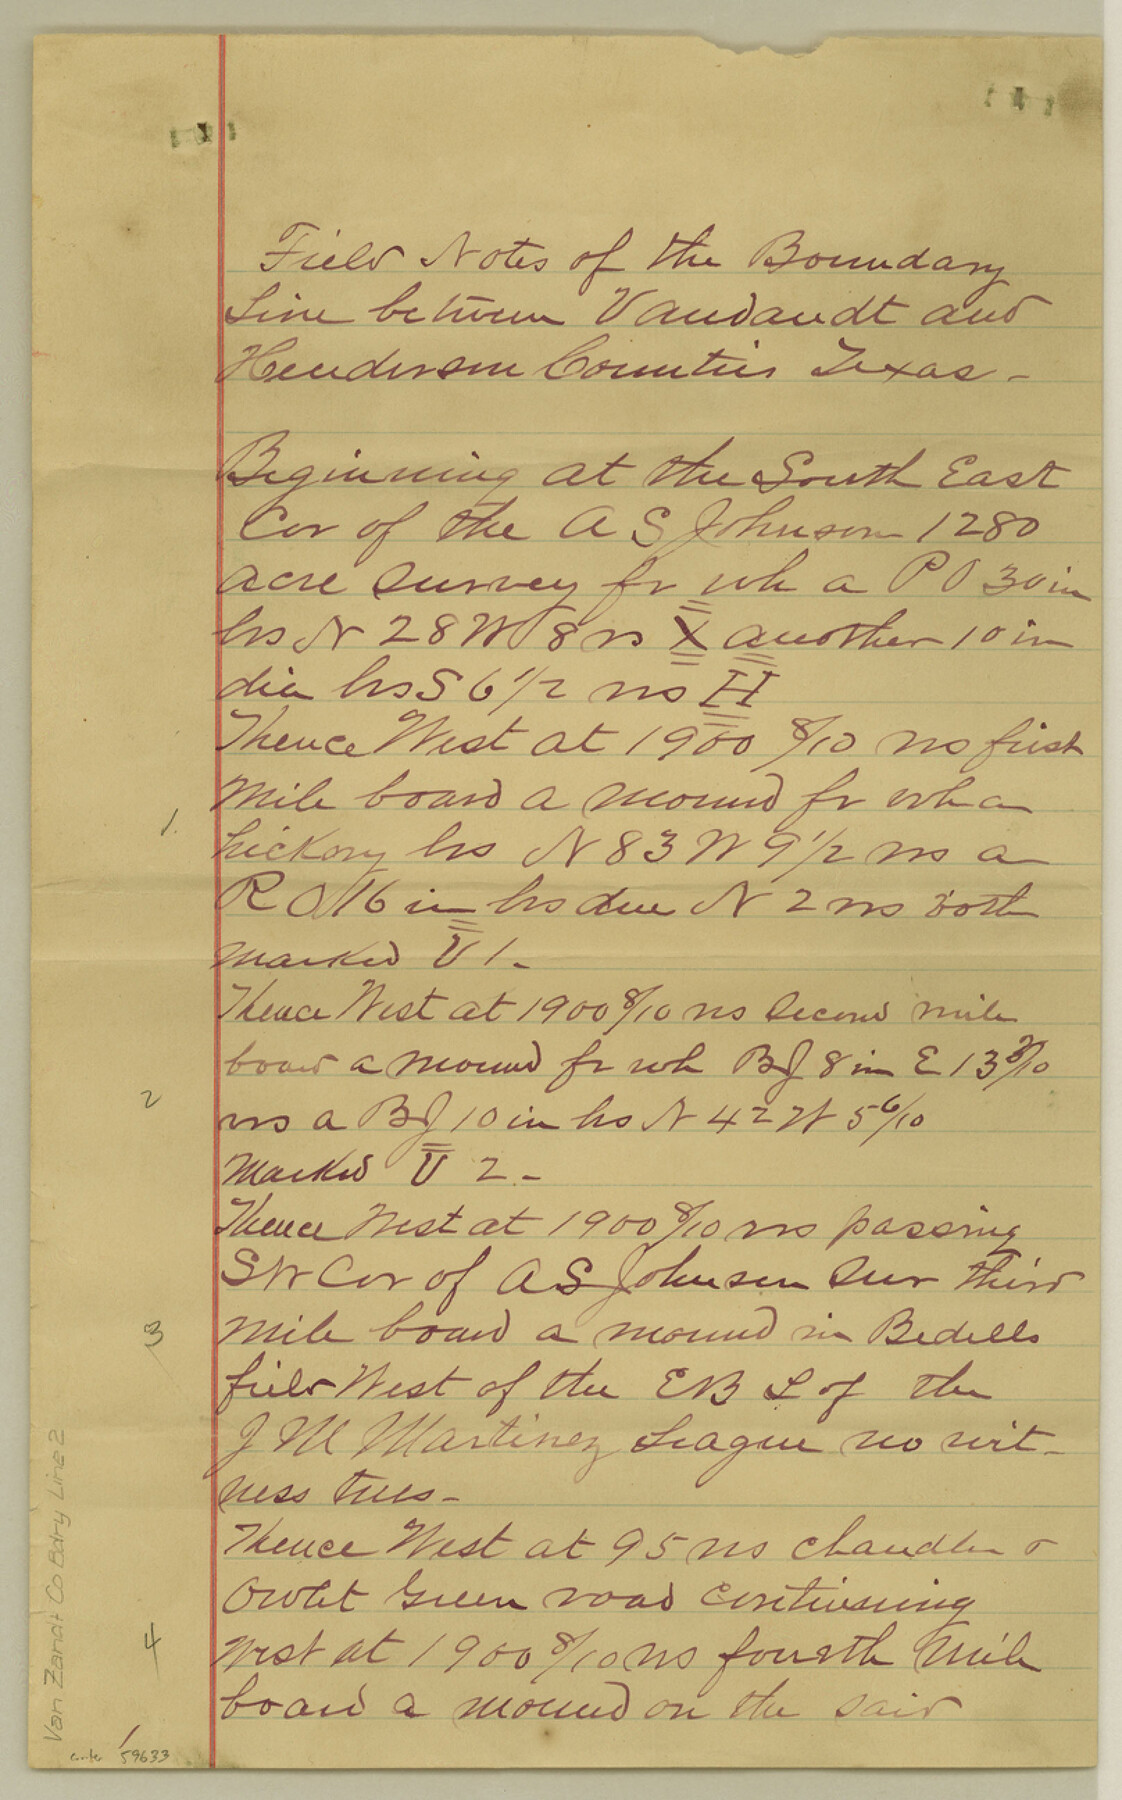 Field Notes of the Boundary
Line between Vandandt and
Henderson Counties Texas -
Beginning at the South East
Cor of the A S Johnson 1280
acre survey fr wh a P O 30 in
brs N 28 W 8 vrs X another 10 in
dia brs S 6 1/2 vrs H
Thence West at 1900 8/10 vrs first
mile board a mound fr wh a
1.
hickory brs N 83 W 9 1/2 vrs a
R O 16 in brs due N 2 vrs both
marked V 1 -
Thence West at 1900 8/10 vrs second mile
board a mound fr wh B J 8 in E 13 3/10
2
vrs a B J 10 in brs N 42 W 5 6/10
marked V 2 -
Thence West at 1900 8/10 vrs passing
SW Cor of A S Johnson Sur Third
3
mile board a mound in Bedells
field West of the E B L of the
J M Martinez League no wit-
ness trees -
Thence West at 95 vrs chandler &
Owlet Green road continuing
4
West at 1900 8/10 vrs fourth mile
board a mound on the said
Van Zandt Co Bdry Line 2
59633